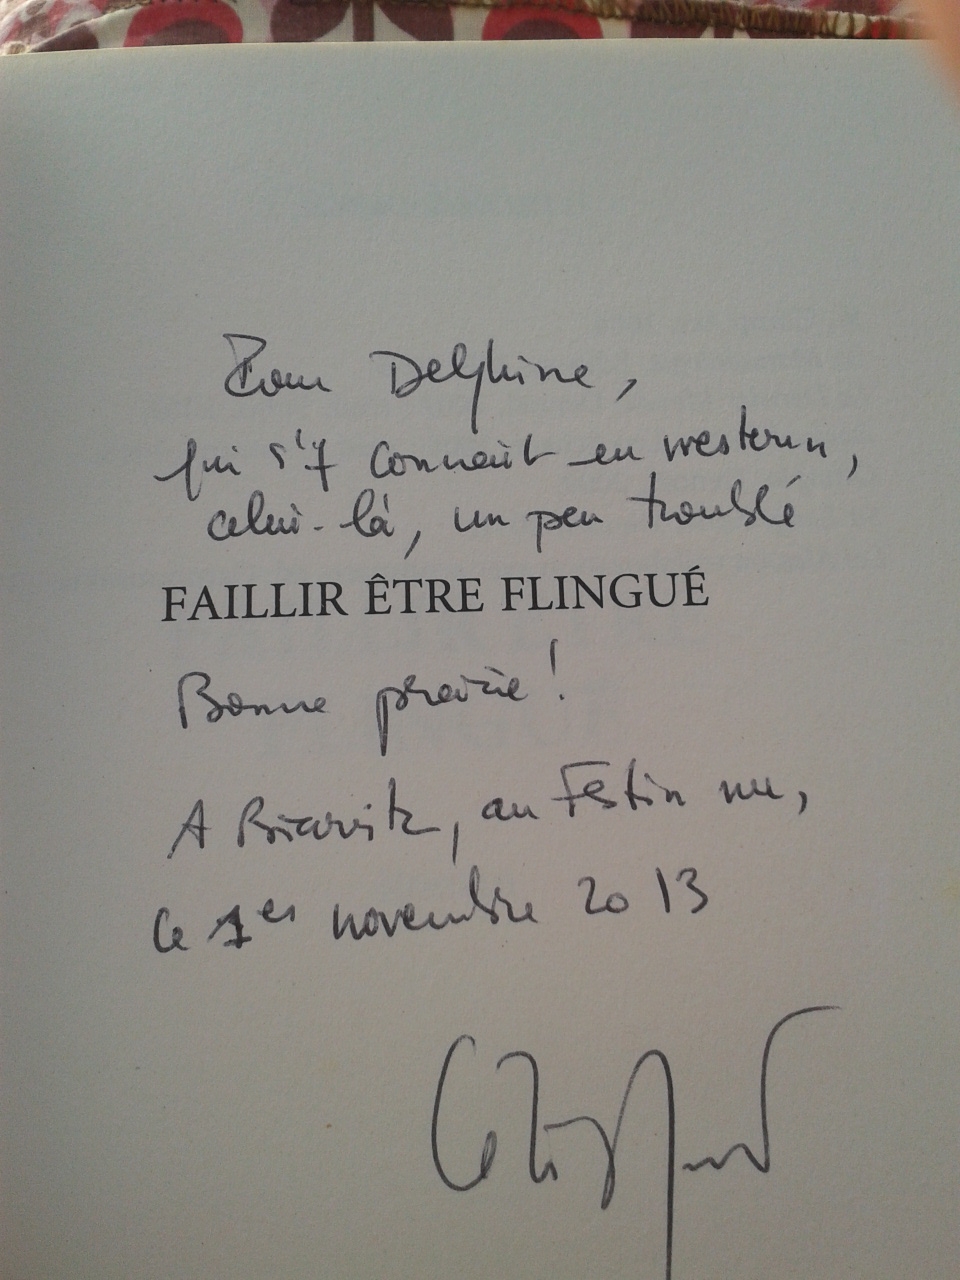 Pour Delphine,
qui s'y connaît en western,
celui-là, un peu troublé
FAILLIR ÊTRE FLINGUÉ
Bonne prairie !
A Biarritz, au Festin nu,
Ce 1er novembre 2013